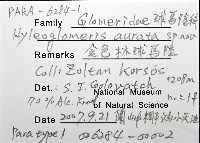 PARA-6284-1
Family Glomeridae 球馬陸科
Hyleoglomeris aurata sp. nov
Remarks 金色球馬陸
Coll: Zoltan Korsos
Det. S. I. Golovatch 1208M
70% Alc. National Museum of Natural Science
Date 2007.9.21 蘭嶼
Paratype 1 006284-00002